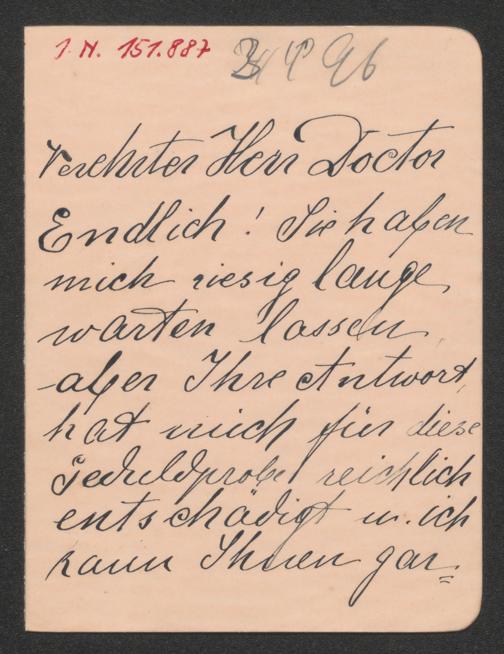 J. N. 151.887
96
Verehrter Herr Doctor
Endlich! Sie haben
mich riesig lange
warten lassen
aber Ihre Antwort
hat mich für diese
Geduldprobe reichlich
entschädigt u. ich
kann Ihnen gar=